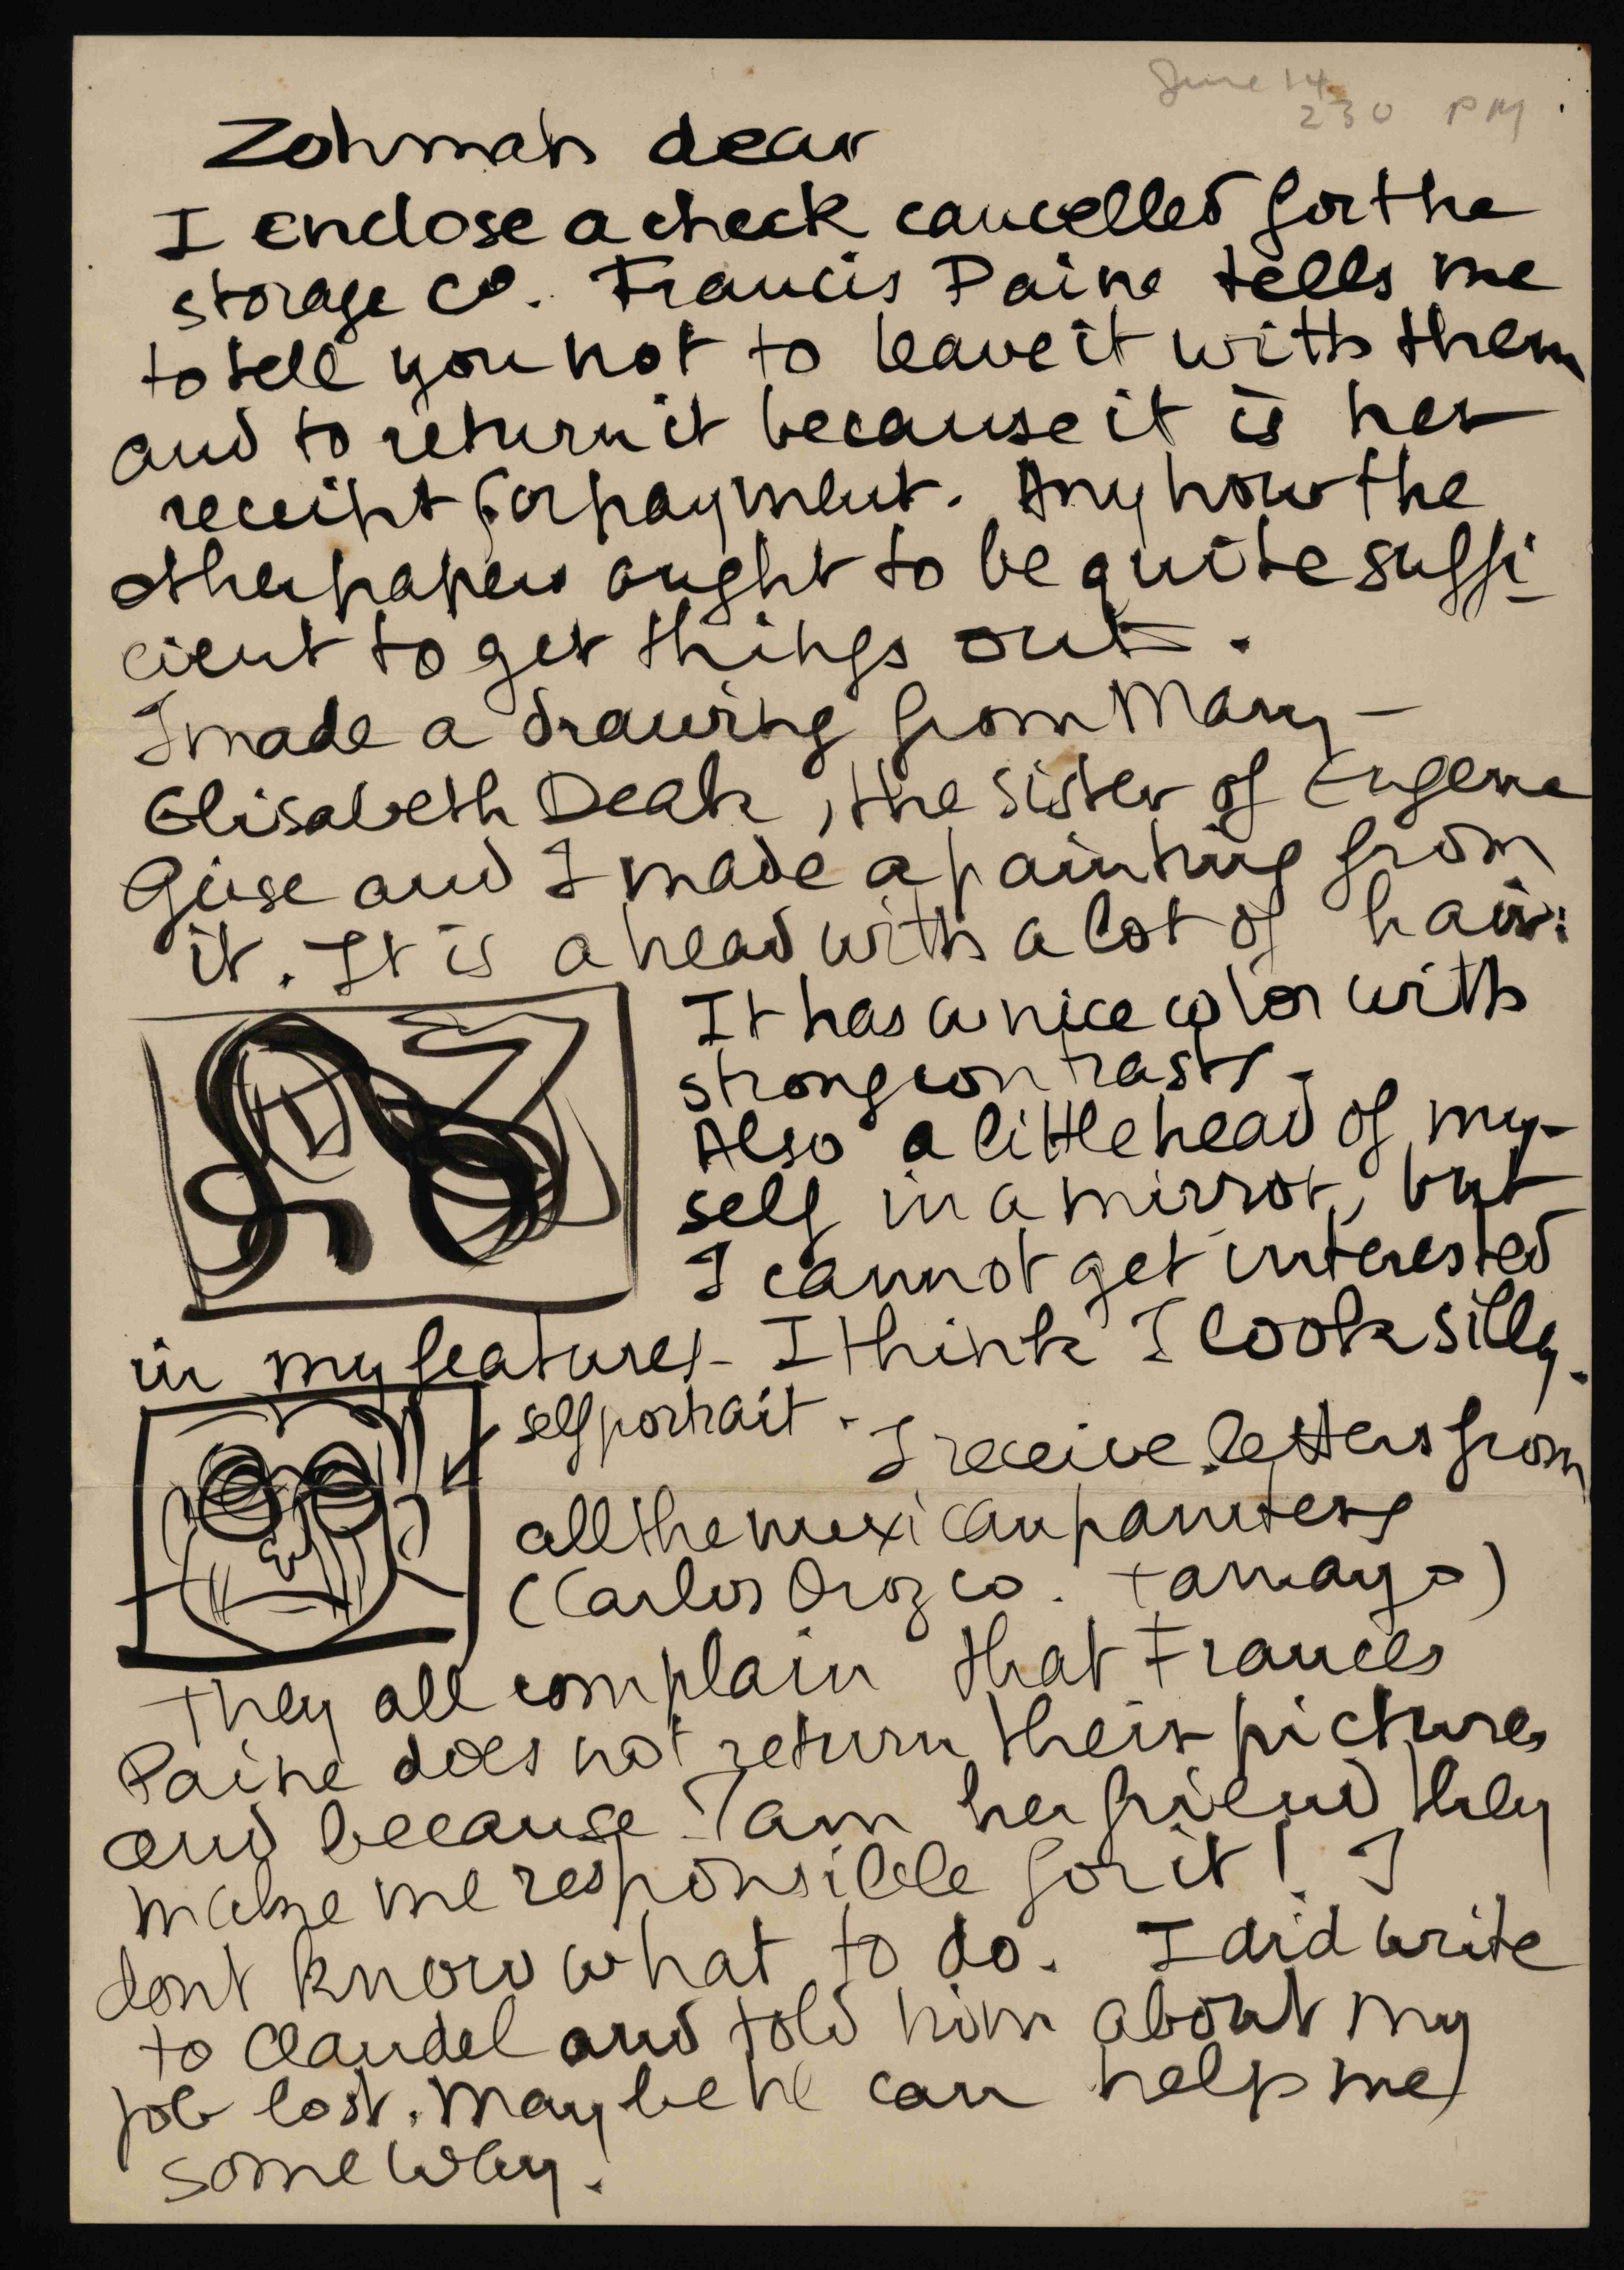 June 14
2 30 PM
Zohmah dear
I enclose a check cancelled for the
storage Co. Francis Paine tells me
to tell you not to leave it with them
and to return it because it is her
receipt for payment. Anyhow the
other papers ought to be quite suffi-
cient to get things out.
I made a drawing from Mary-
Elisabeth Deak, the sister of Eugene
Guse and I made a painting from
it. It is a head with a lot of hair:
It has a nice color with
strong contrasts.
Also a little head of my-
self in a mirror, but
I cannot get interested
in my features - I think I look silly.
self portrait. I receive letters from
all the mexican painters
(Carlos Orozco. tamayo)
They all complain that Frances
Paine does not return their pictures
and because I am her friend they
make me responsible for it! I
dont know what to do. I did write
to Claudel and told him about my
job lost. Maybe he can help me
some way.